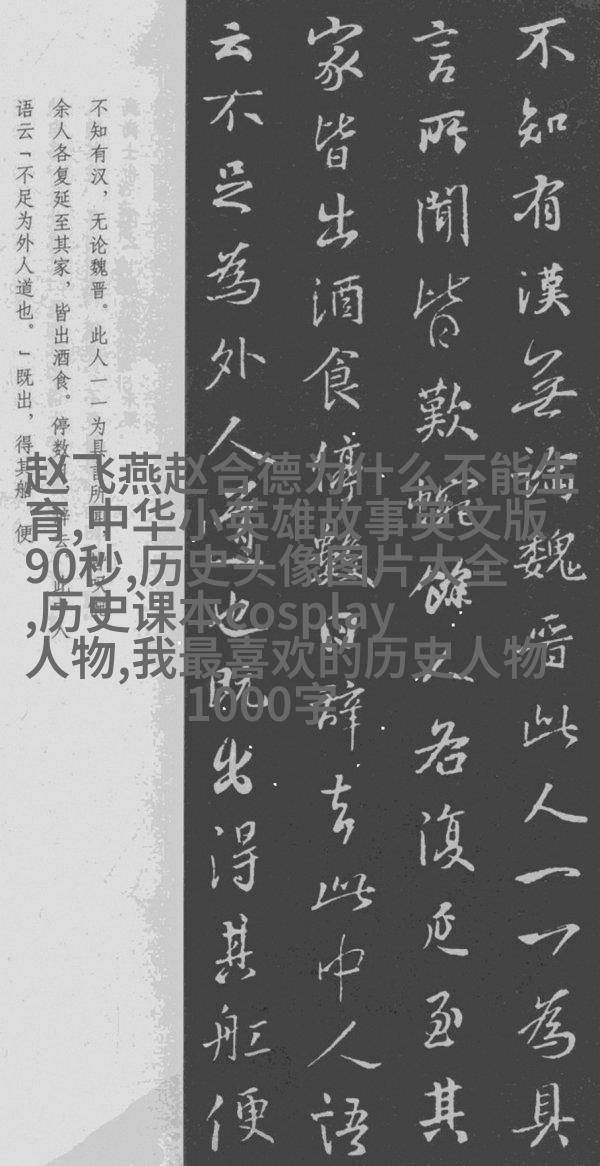 不知有漢無論魏晋此人一一為具
言所聞皆歎惋餘人各復延至其
家皆出酒食停數日辭去此中人語
云不足為外人道也既出得其舡便
不知有汉，无论魏晋。此人一一为具言所
余人各复延至其家，皆出酒食。停数日，辞去。此中人
语云「不足为外人道也。」既出，得其船，便
赵飞燕赵合德为什么不能生
育,中华小英雄故事英文版
90秒,历史头像图片大全
,历史课本cosplay
人物,我最喜欢的历史人物
1000字